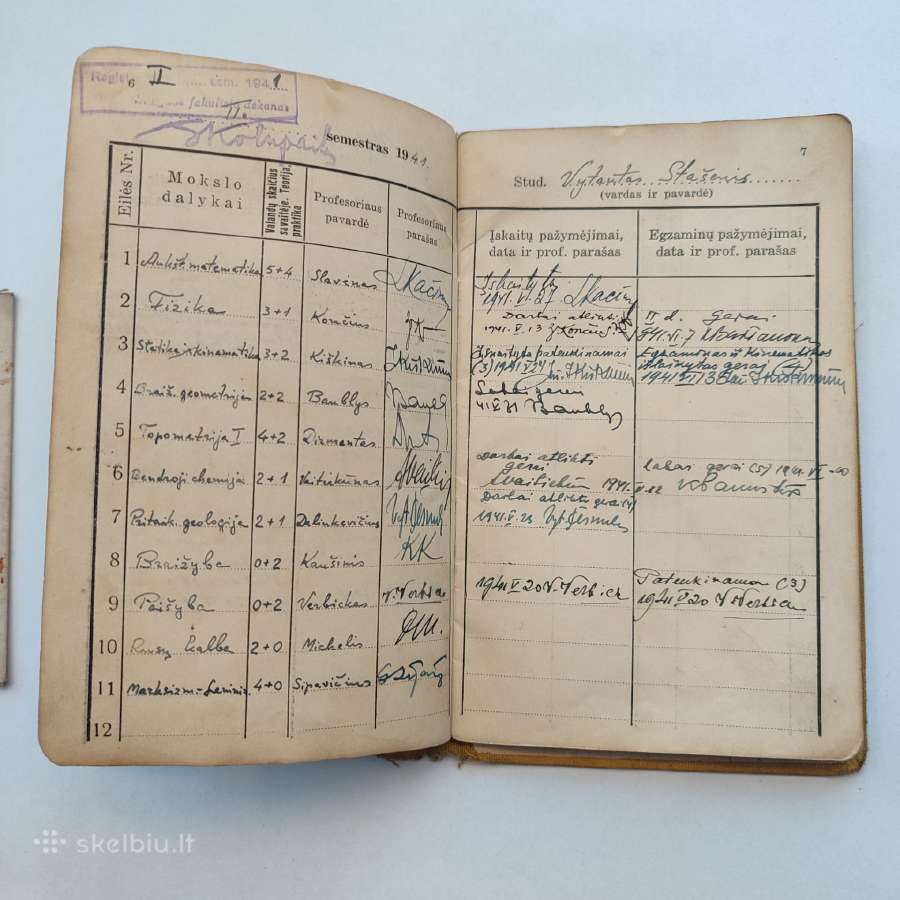 6
Regist. II sem. 1941
fakulteto dekanas
II.
semestras 1941.
Eilės Nr.
Mokslo dalykai
Valandų skaičius savaitėje. Teorija, praktika
Profesoriaus pavardė
Profesoriaus parašas
1 Aukšt. matematika 5+4 Slavėnas
2 Fizika 3+1 Končius
3 Statika ir kinematika 3+2 Kiškinas
4 Braiž. geometrija 2+2 Baublys
5 Topometrija I 4+2 Dirmantas
6 Bendroji chemija 2+1 Vaitiekūnas
7 Pritaik. geologija 2+1 Dalinkevičius
8 Braižyba 0+2 Kaušinis KK
9 Paišyba 0+2 Verbickas
10 Rusų kalba 2+0 Michelis
11 Marksizm-Lenin. 4+0 Sipavičius
12
7
Stud. Vytautas Stašenis
(vardas ir pavardė)
Įskaitų pažymėjimai, data ir prof. parašas
Egzaminų pažymėjimai, data ir prof. parašas
Įskaityta
1941.VI.27
Darbai atlikti
1941.V.13
II d. gerai
941.VI.7
Išskaityta patenkinamai
(3) 1941
Egzaminas iš Kinematikos
išlaikytas gerai (4)
Labai gerai
41 Baublys
Darbai atlikti
gerai
1941.V.22
labai gerai (5) 1941.VI.20
Darbai atlikti gerai (4)
1941.V.23
1941 V 20 V. Verbick
Patenkinamai (3)
1941 V 20
skelbiu.lt